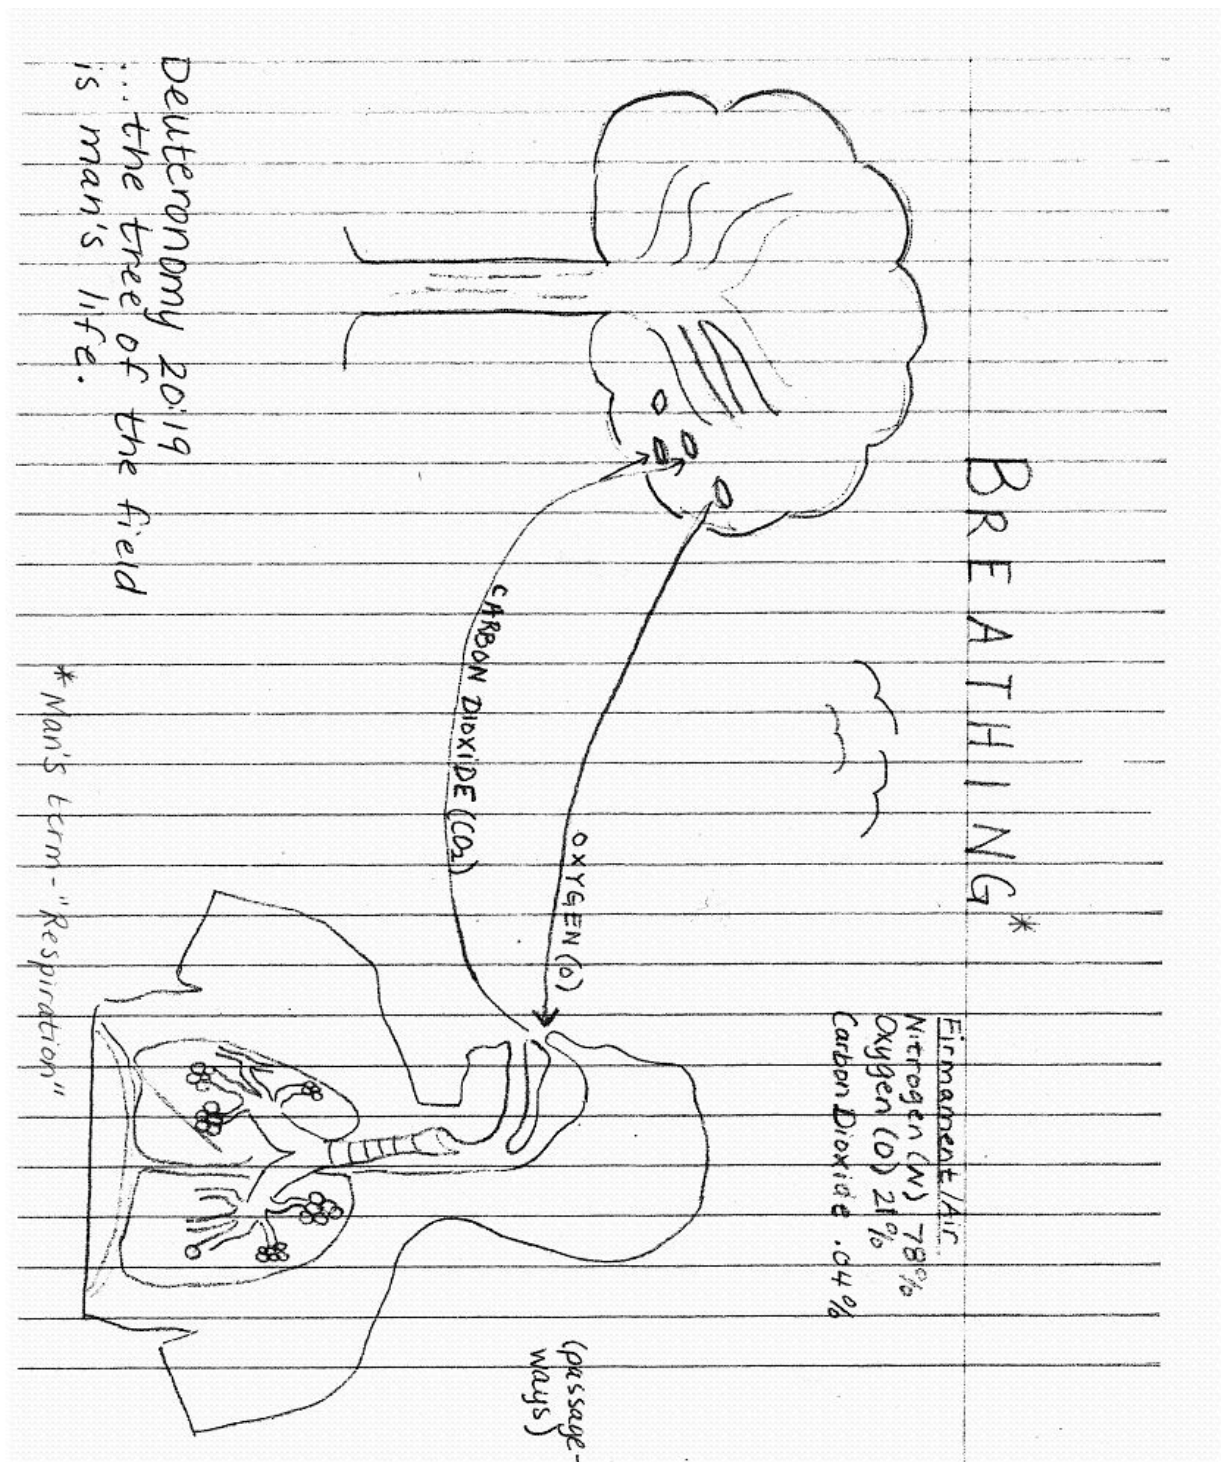 BREATHING*
Firmament/Air
Nitrogen (N) 78%
Oxygen (O) 21%
Carbon Dioxide .04%
OXYGEN (O)
CARBON DIOXIDE (CO₂)
(passage-
ways)
Deuteronomy 20:19
...the tree of the field
is man's life.
*Man's term-"Respiration"